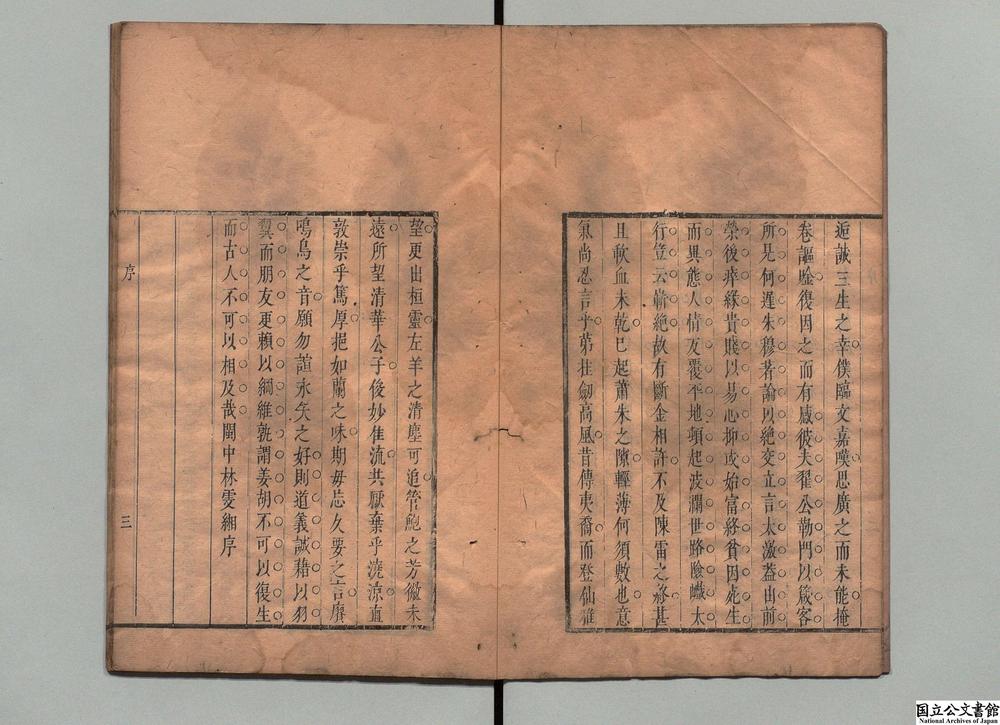 逅誠三生之幸僕臨文嘉嘆思廣之而未能掩
卷謳唫復因之而有感彼夫翟公勒門以箴客
所見何遲朱穆著論以絕交立言太激蓋由前
榮後瘁緣貴賤以易心抑或始富終貧因死生
而異態人情反覆平地頓起波瀾世路險巇太
行豈云嶄絕故有斷金相許不及陳雷之終甚
且歃血未乾已起蕭朱之隙輕薄何須數也意
氣尚忍言乎第挂劍高風昔傳夷裔而登仙雅
望更出桓靈左羊之清塵可追管鮑之芳徽未
遠所望清華公子俊妙佳流共厭棄乎澆涼直
敦崇乎篤厚挹如蘭之味期毋忘久要之言賡
鳴鳥之音願勿諠永矢之好則道義誠藉以羽
翼而朋友更賴以綱維孰謂姜胡不可以復生
而古人不可以相及哉閩中林雯緗序
序
三
国立公文書館
National Archives of Japan